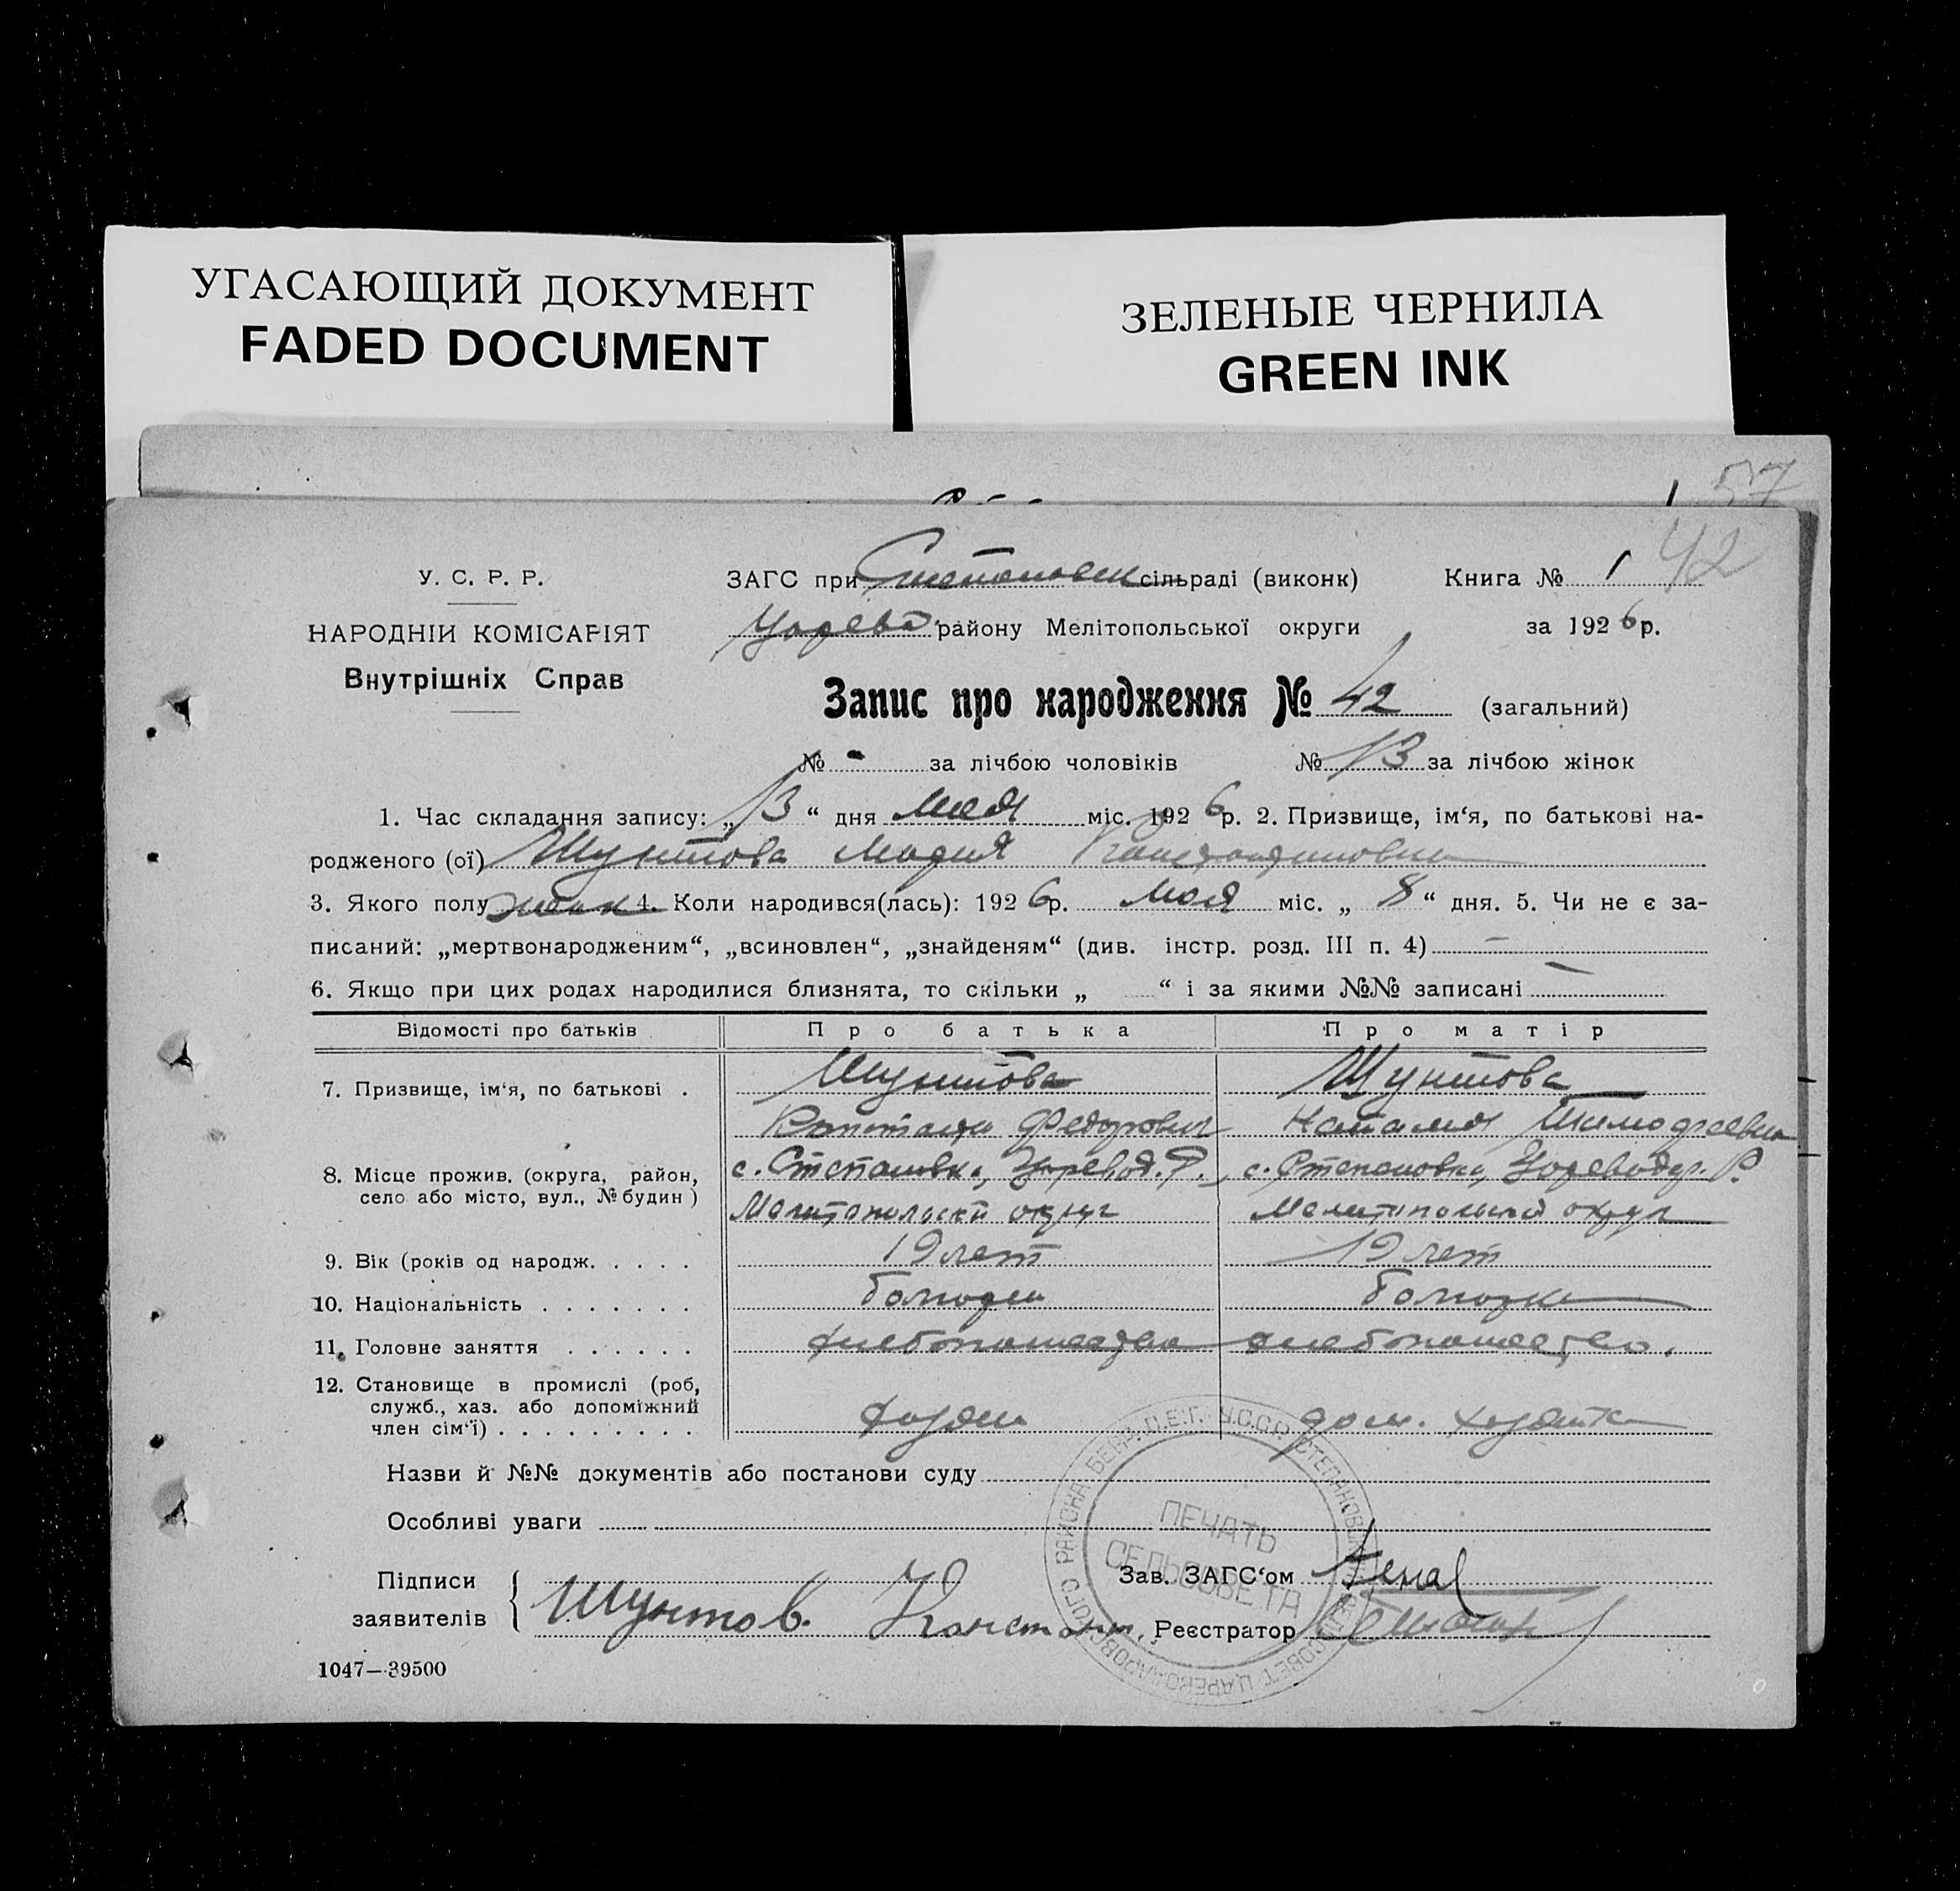 УГАСАЮЩИЙ ДОКУМЕНТ
FADED DOCUMENT
ЗЕЛЕНЫЕ ЧЕРНИЛА
GREEN INK
57
42
У. С. Р. Р.
НАРОДНІИ КОМІСАРІЯТ
Внутрішніх Справ
ЗАГС при Степановск сільраді (виконк) Книга № 1
Царево району Мелітопольської округи за 1926 р.
Запис про народження № 42 (загальний)
№ - за лічбою чоловіків № 13 за лічбою жінок
1. Час складання запису: „13“ дня Мая міс. 1926 р. 2. Призвище, ім‘я, по батькові на-
родженого (ої) Шунтова Мария Константиновна
3. Якого полу женск 4. Коли народився(лась): 1926 р. Мая міс. „8“ дня. 5. Чи не є за-
писаний: „мертвонародженим“, „всиновлен“, „знайденям“ (див. інстр. розд. III п. 4) —
6. Якщо при цих родах народилися близнята, то скільки „ “ і за якими №№ записані —
Відомості про батьків Про батька Про матір
7. Призвище, ім‘я, по батькові . Шунтова Шунтова
Федорович Наталия Тимофеевна
8. Місце прожив. (округа, район, село або місто, вул., № будин) с. Степановка, Царевод. Р., с. Степановка, Цареводар. Р.
Мелитопольский округ Мелитопольский округ
9. Вік (років од народж. . . . . 19 лет 19 лет
10. Національність . . . . . . .
11. Головне заняття . . . . . . хлебопашество хлебопашество.
12. Становище в промислі (роб, служб., хаз. або допоміжний член сім‘ї) . . . . . . . . . хозяин дом. хозяйка
Назви й №№ документів або постанови суду
Особливі уваги
Підписи заявителів Шунтов. Констант.
Зав. ЗАГС‘ом
Реєстратор
ПЕЧАТЬ
СЕЛЬСОВЕТА
1047—39500